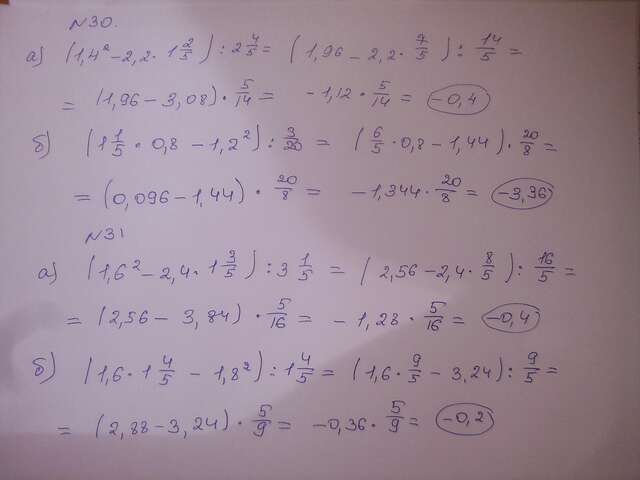 N30.
а) (1,4² - 2,2 · 1 2/5) : 2 4/5 = (1,96 - 2,2 · 7/5) : 14/5 =
= (1,96 - 3,08) · 5/14 = -1,12 · 5/14 = -0,4
б) (1 1/5 · 0,8 - 1,2²) : 3/20 = (6/5 · 0,8 - 1,44) · 20/8 =
= (0,096 - 1,44) · 20/8 = -1,344 · 20/8 = -3,96
N31
а) (1,6² - 2,4 · 1 3/5) : 3 1/5 = (2,56 - 2,4 · 8/5) : 16/5 =
= (2,56 - 3,84) · 5/16 = -1,28 · 5/16 = -0,4
б) (1,6 · 1 4/5 - 1,8²) : 1 4/5 = (1,6 · 9/5 - 3,24) : 9/5 =
= (2,88 - 3,24) · 5/9 = -0,36 · 5/9 = -0,2